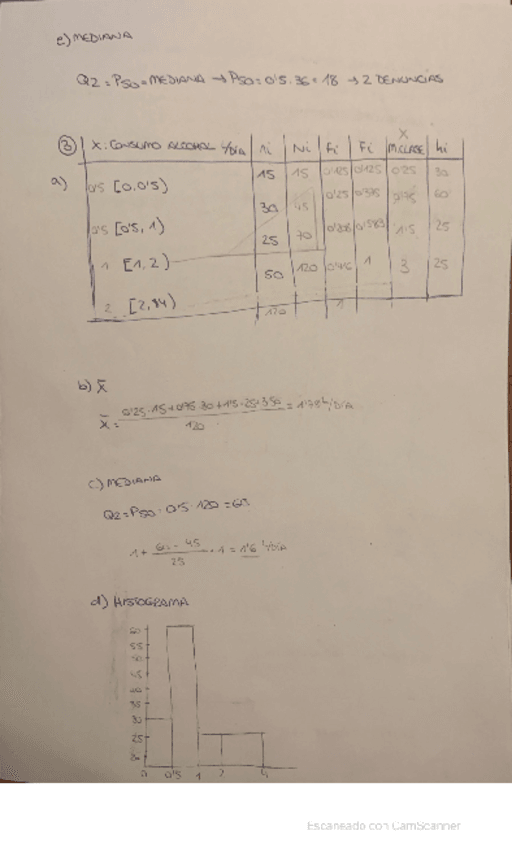 e) MEDIANA
Q2 = P50 = MEDIANA → P50 = 0'5 · 36 = 18 → 2 DENUNCIAS
③ X: CONSUMO ALCOHOL L/DÍA ni Ni fi Fi X M.CLASE hi
a) 0'5 [0,0'5) 15 15 0'125 0'125 0'25 30
0'5 [0'5,1) 30 45 0'25 0'375 0'75 60
1 [1,2) 25 70 0'208 0'583 1'5 25
2 [2,4) 50 120 0'416 1 3 25
120 1
b) x̄
x̄ = 0'25·15+0'75·30+1'5·25+3·50 / 120 = 1'78 L/DÍA
c) MEDIANA
Q2 = P50 · 0'5 · 120 = 60
1 + 60 - 45 / 25 · 1 = 1'6 L/DÍA
d) HISTOGRAMA
60
55
50
45
40
35
30
25
0 0'5 1 2 4
Escaneado con CamScanner